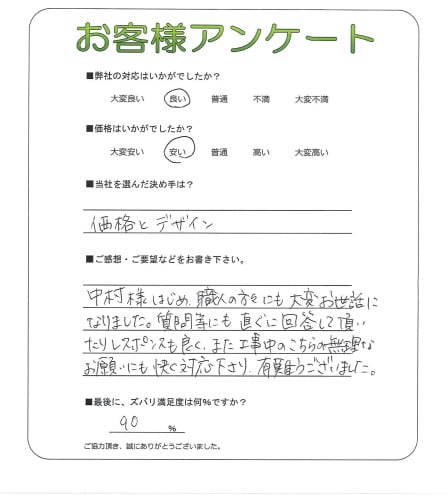 お客様アンケート
■弊社の対応はいかがでしたか？
大変良い 良い 普通 不満 大変不満
■価格はいかがでしたか？
大変安い 安い 普通 高い 大変高い
■当社を選んだ決め手は？
価格とデザイン
■ご感想・ご要望などをお書き下さい。
中村様はじめ、職人の方々にも大変お世話に
なりました。質問等にも直ぐに回答して頂い
たりレスポンスも良く、また工事中のこちらの無理な
お願いにも快く対応下さり、有難うございました。
■最後に、ズバリ満足度は何%ですか？
90 %
ご協力頂き、誠にありがとうございました。